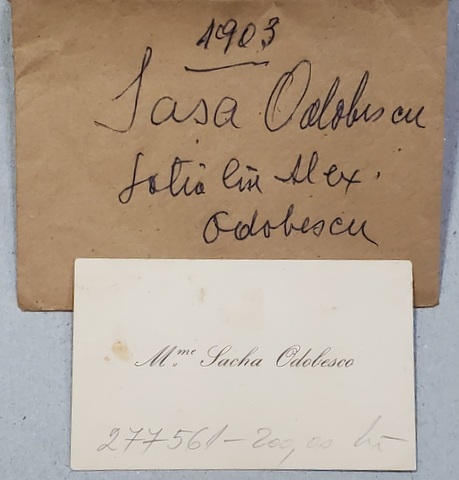 1903
Sasa Odobescu
Sotia lui Alex.
Odobescu
Mme Sacha Odobesco
277561 - 200,00 lei